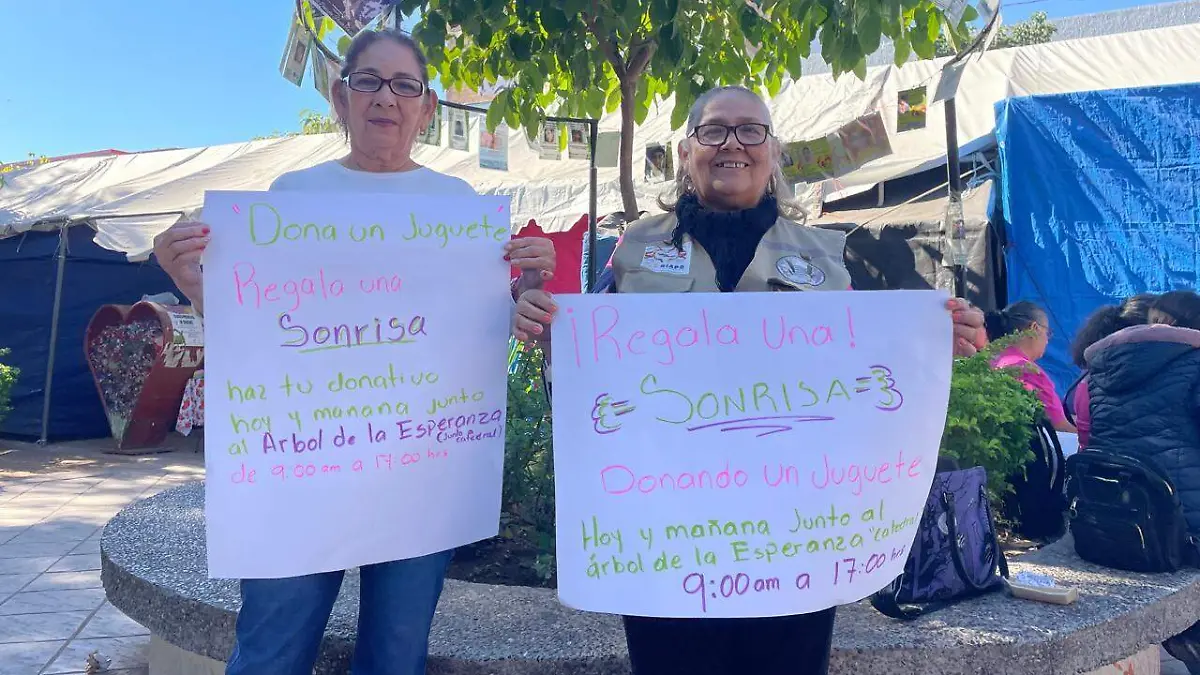 "Dona un Juguete"
Regala una
Sonrisa
haz tu donativo
hoy y mañana junto
al Arbol de la Esperanza
(Junto a catedral)
de 9:00 am a 17:00 hrs
¡Regala Una!
SONRISA
Donando un Juguete
Hoy y mañana Junto al
árbol de la Esperanza "catedral"
9:00am a 17:00 hrs